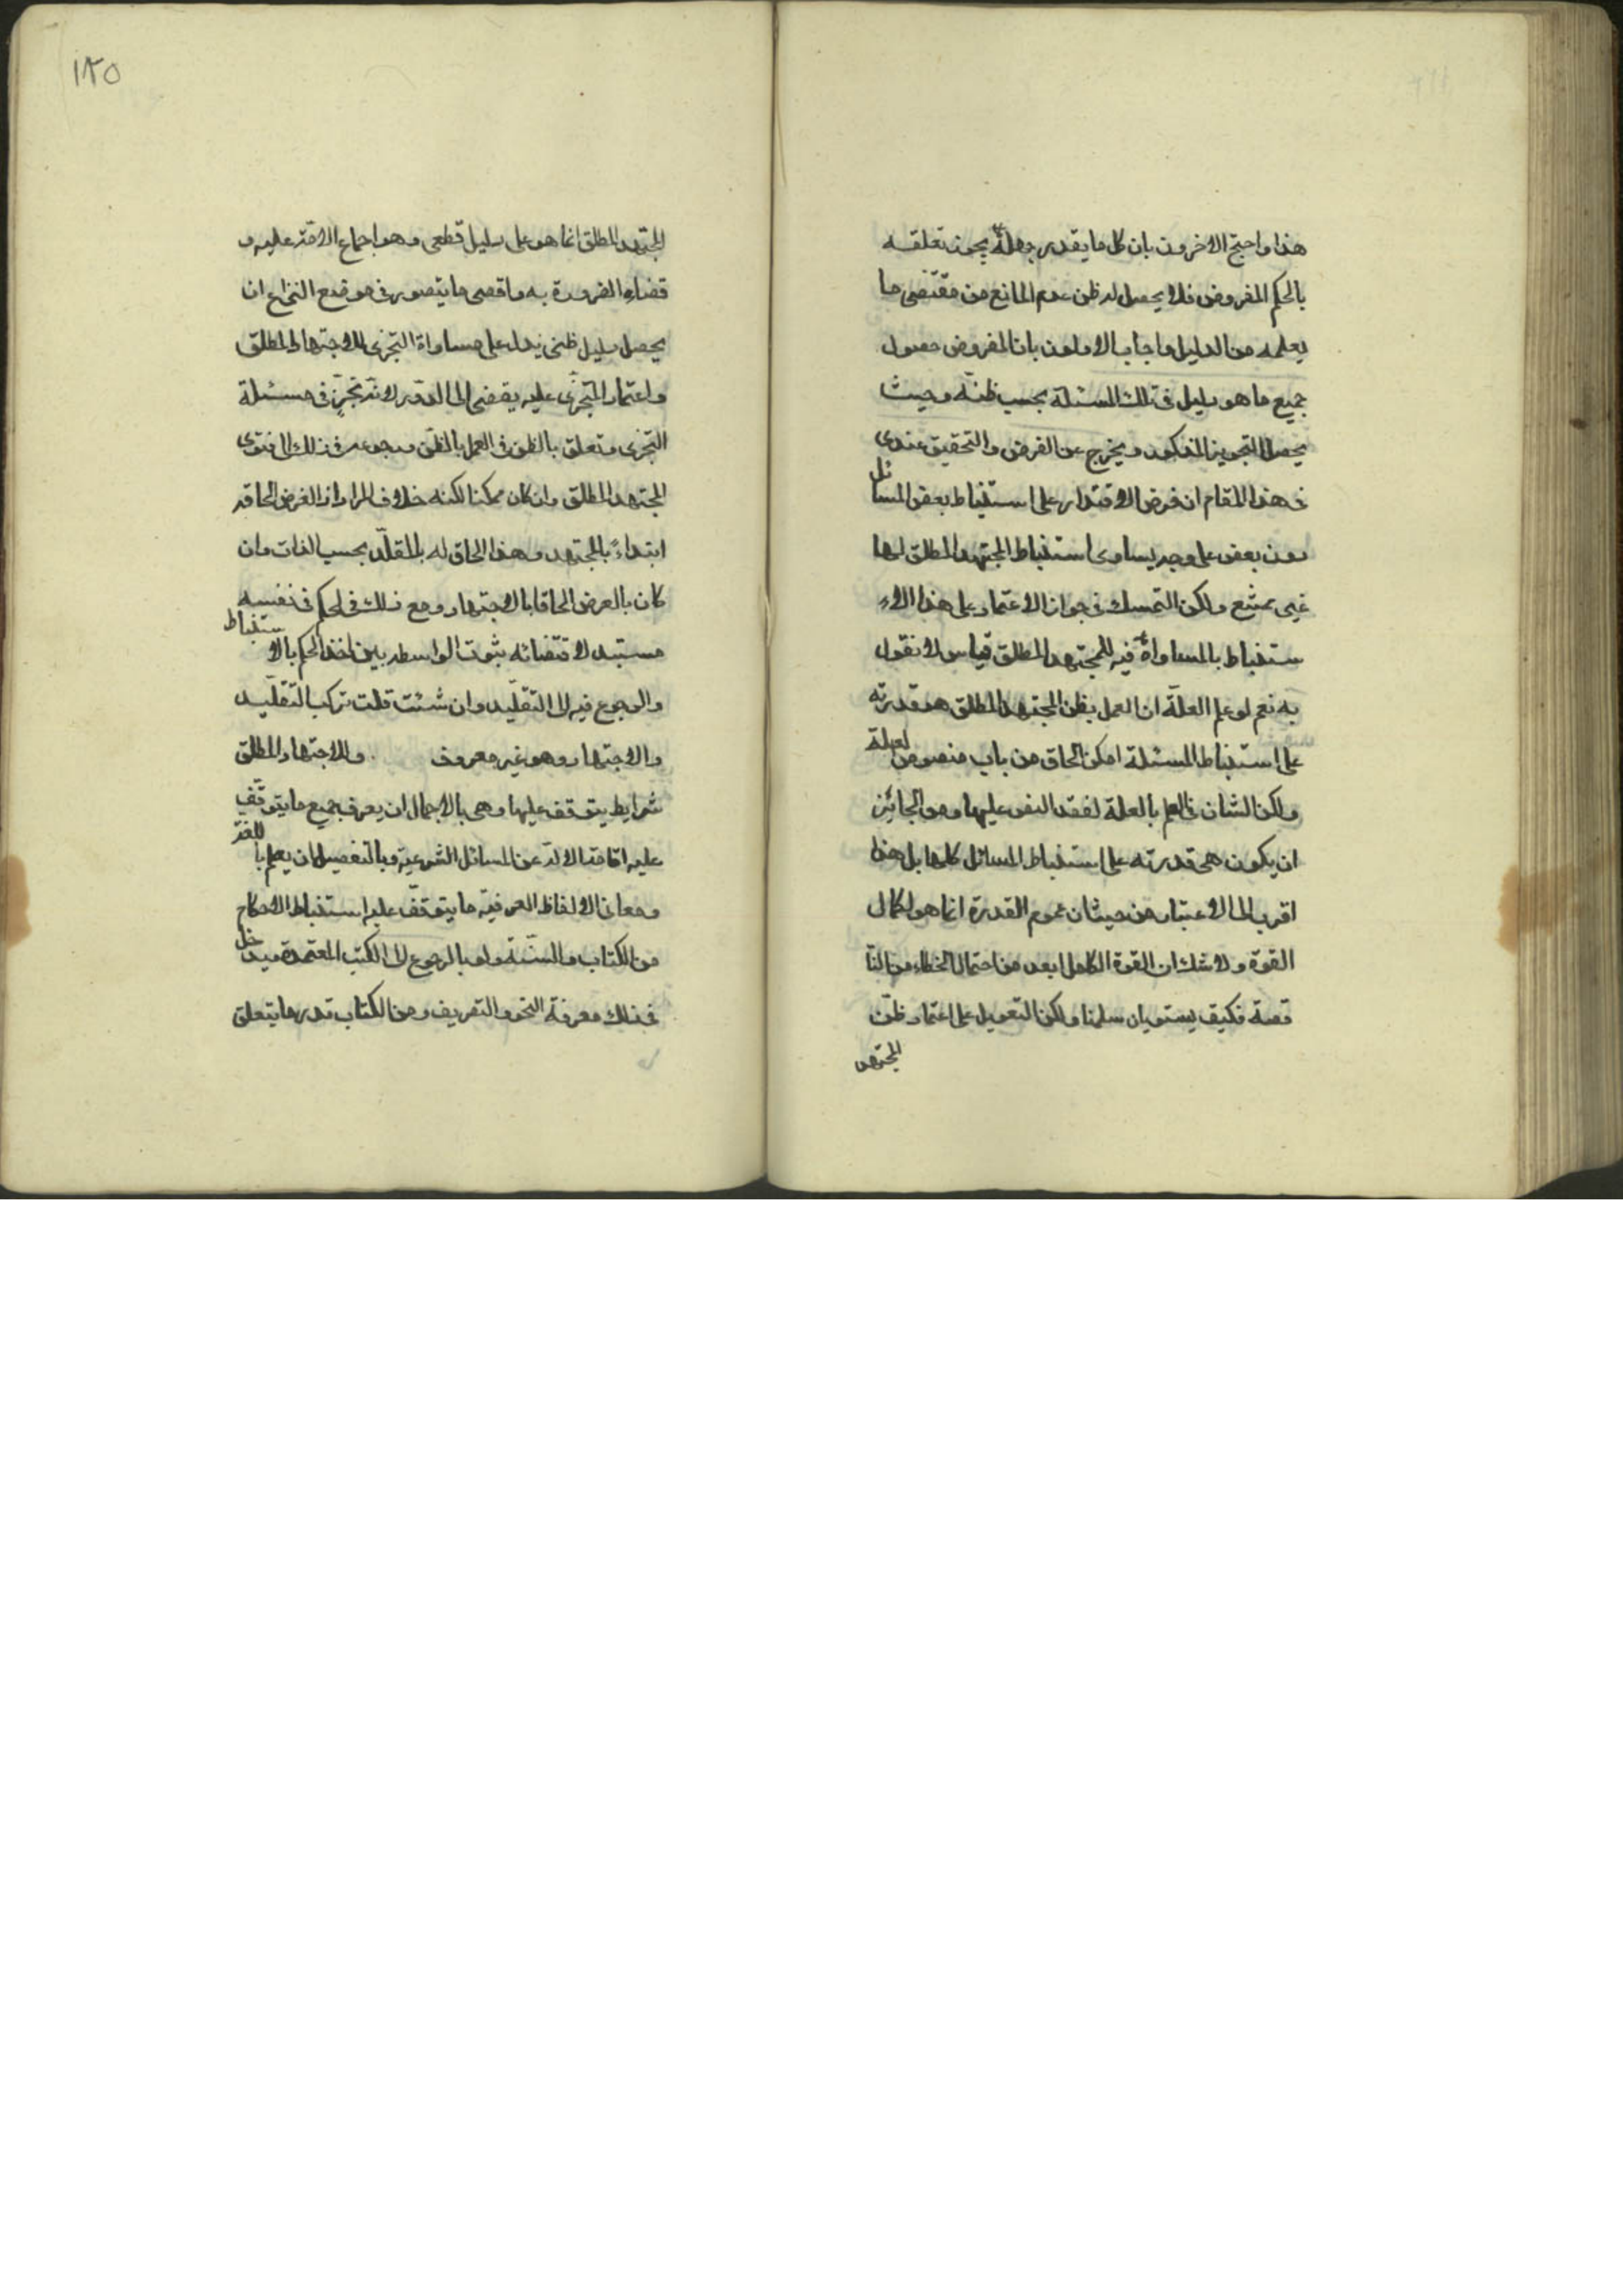 هذا واحتج الاخرون بان كل ما يقدر جهله يجوز تعلقه
بالحكم المفروض فلا يحصل له ظن عدم المانع من مقتضى ما
يعلمه من الدليل واجاب الاولون بان المفروض حصول
جميع ما هو دليل فى تلك المسئلة بحسب ظنه وحيث
يحصل التجويز المذكور ويخرج عن الفرض والتحقيق عندى
فى هذا المقام ان فرض الاقتدار على استنباط بعض المسائل
دون بعض على وجه يساوى استنباط المجتهد المطلق لها
غير ممتنع ولكن التمسك فى جواز الاعتماد على هذا الا
ستنباط بالمساواة فيه للمجتهد المطلق قياس لا نقول
به نعم لو علم العلة ان العمل بظن المجتهد المطلق هو قدرته
على استنباط المسئلة امكن الحاق من باب منصوص لعلة
ولكن الشان فى العلم بالعلة لفقد النص عليها ومن الجائز
ان يكون هى قدرته على استنباط المسائل كلها بل هذا
اقرب الى الاعتبار من حيث ان عموم القدرة انما هو لكمال
القوة ولا شك ان القوة الكامل ابعد من احتمال الخطاء من النا
قصة فكيف يستويان سلمنا ولكن التعويل على اعتماد ظن
المجتهد
١٢٥
المجتهد المطلق انما هو على دليل قطعى وهو اجماع الامة عليه و
قضاء الضرورة به واقصى ما يتصور فى موضع النزاع ان
يحصل دليل ظنى يدل على مساواة التجزى للاجتهاد المطلق
واعتماد المتجزى عليه يفضى الى الدور لانه تجز فى مسئلة
التجزى وتعلق بالظن فى العمل بالظن ورجوعه فى ذلك الى فتوى
المجتهد المطلق وان كان ممكنا لكنه خلاف المراد اذ الفرض الحاقه
ابتداء بالمجتهد وهذا الحاق له بالمقلد بحسب الذات وان
كان بالعرض الحاقا بالاجتهاد ومع ذلك فى لحكم فى نفسه
مستبعد لاقتضائه ثبوت الواسطه بين اخذ الحكم بالاستنباط
والرجوع فيه الى التقليد وان شئت قلت تركب التقليد
والاجتهاد وهو غير معروف . وللاجتهاد المطلق
شرايط يتوقف عليها وهى بالاجمال ان يعرف جميع ما يتوقف
عليه اقامة الادلة عن المسائل الشرعية وبالتفصيل ان يعلم باللغة
ومعانى الالفاظ العرفية ما يتوقف عليه استنباط الاحكام
من الكتاب والسنة ولو بالرجوع الى الكتب المعتمدة ويدخل
فى ذلك معرفة النحو والتصريف ومن الكتاب قدر ما يتعلق